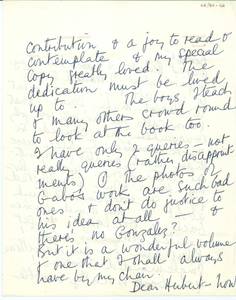 contribution & a joy to read &
contemplate & my special
copy greatly loved. The
dedication must be lived
up to. The boys I teach
& many others crowd round
to look at the book too.
I have only 2 queries — not
really queries (rather disappoint
ments) ① the photos of
Gabo's work are such bad
ones & don't do justice to
his idea at all — &
there's no Gonzalez?
But it is a wonderful volume
& one that I shall always
have by my chair.
Dear Hubert — now